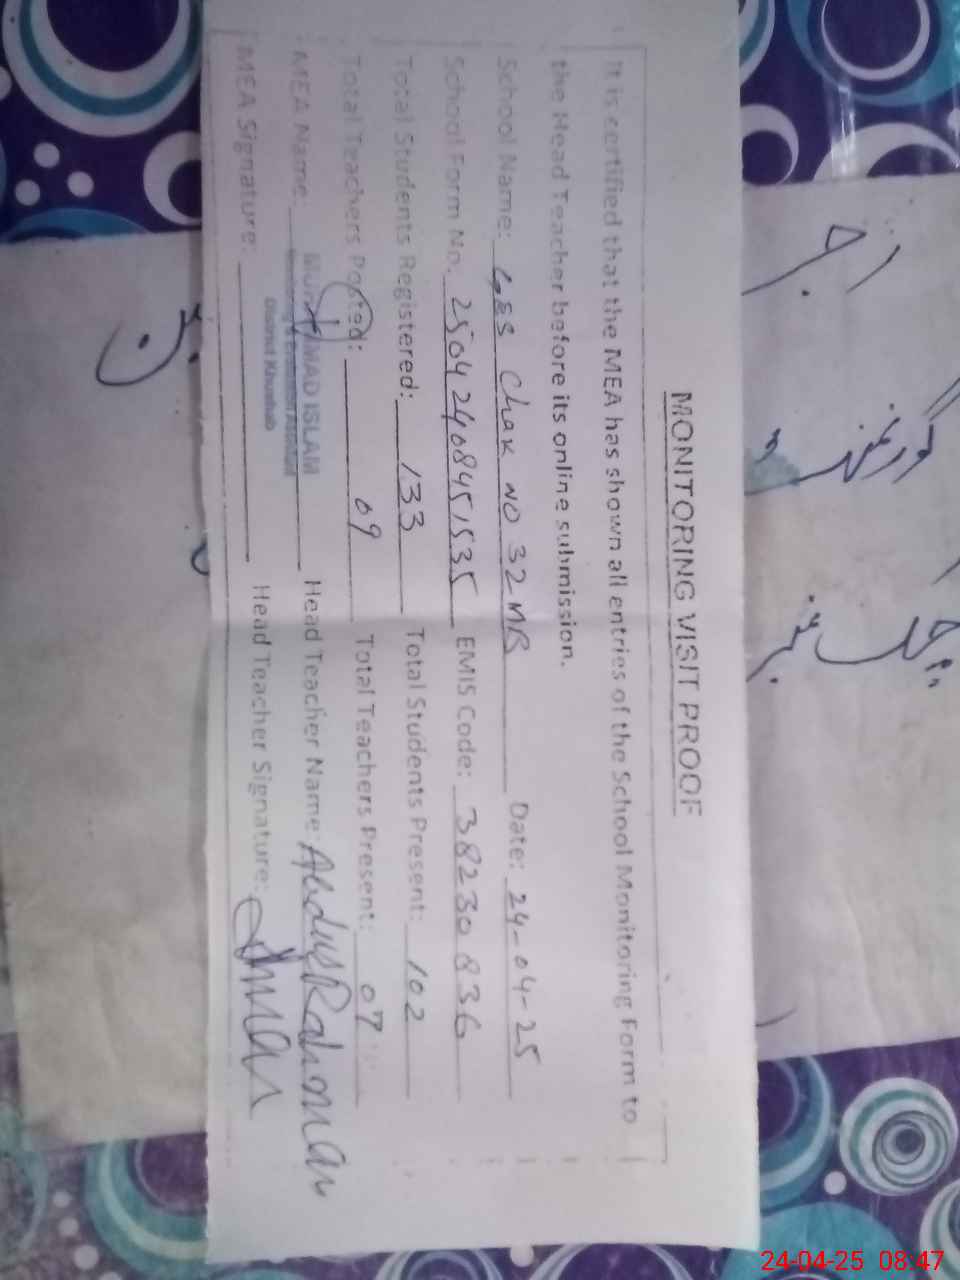 MONITORING VISIT PROOF
It is certified that the MEA has shown all entries of the School Monitoring Form to
the Head Teacher before its online submission.
School Name: GES Chak NO 32 MB Date: 24-04-25
School Form No. 25042408451535 EMIS Code: 38230836
Total Students Registered: 133 Total Students Present: 102
Total Teachers Posted: 09 Total Teachers Present: 07
MEA Name: MUHAMMAD ISLAM Head Teacher Name: Abdul Rahman
Monitoring & Evaluation Assistant
District Khushab
MEA Signature: Head Teacher Signature:
24-04-25 08:47